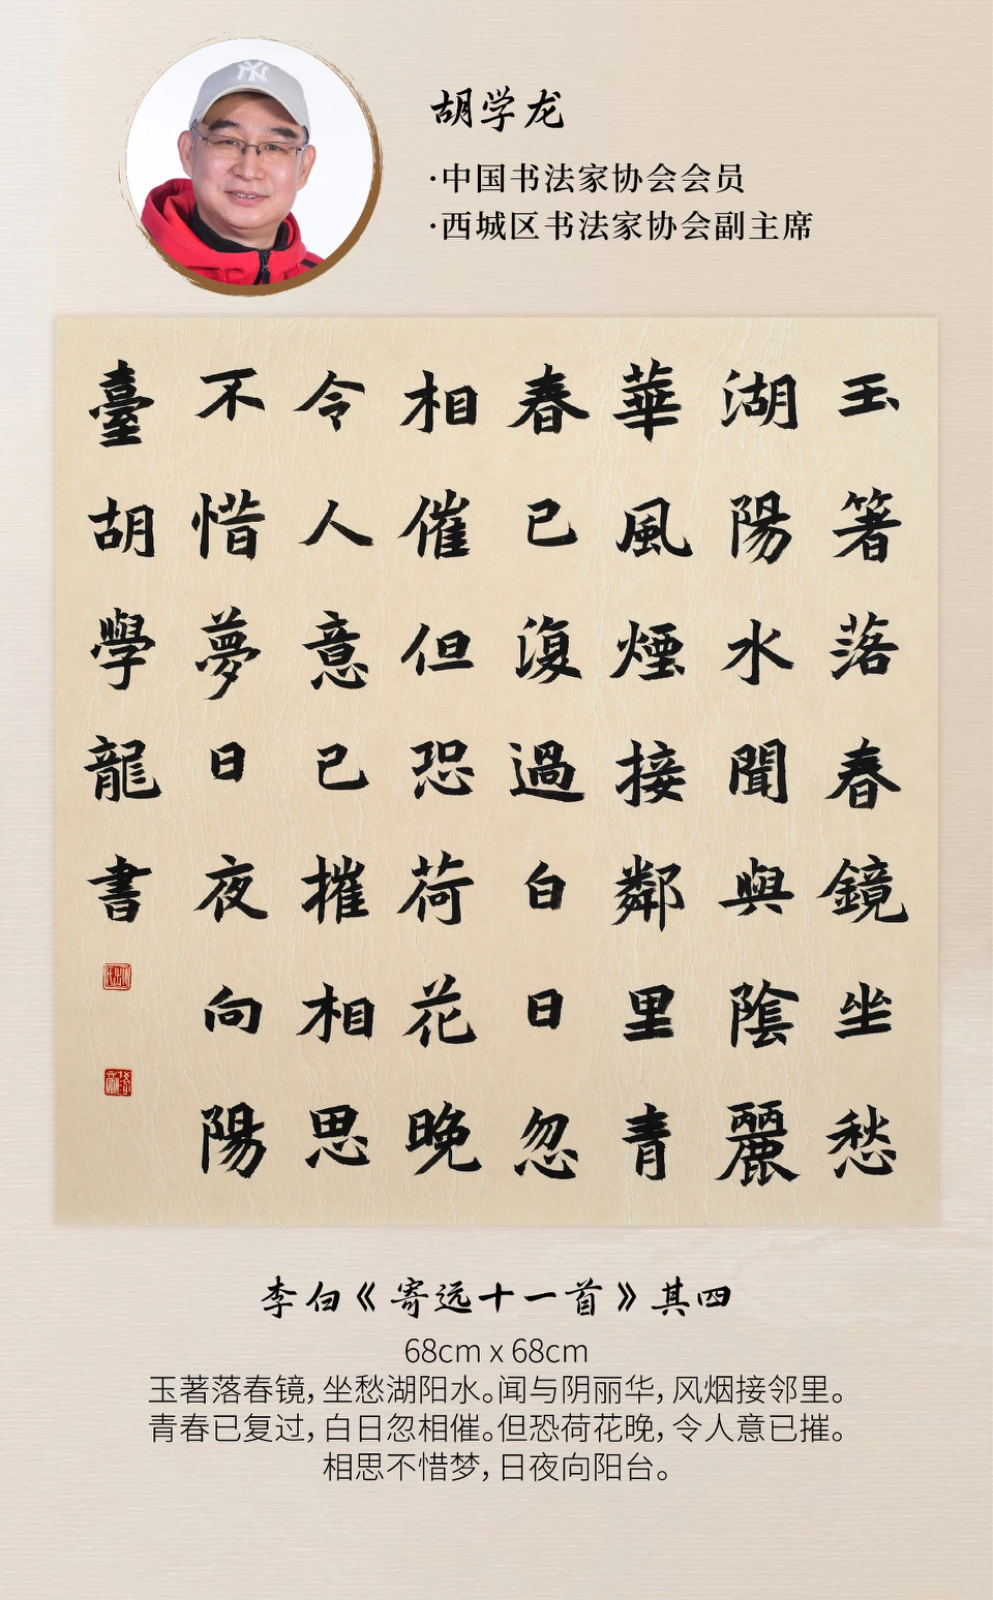 NY
胡学龙
·中国书法家协会会员
·西城区书法家协会副主席
玉箸落春鏡坐愁
湖陽水聞與陰麗
華風煙接鄰里青
春已復過白日忽
相催但恐荷花晚
令人意已摧相思
不惜夢日夜向陽
臺胡學龍書
李白《寄远十一首》其四
68cm x 68cm
玉著落春镜，坐愁湖阳水。闻与阴丽华，风烟接邻里。
青春已复过，白日忽相催。但恐荷花晚，令人意已摧。
相思不惜梦，日夜向阳台。